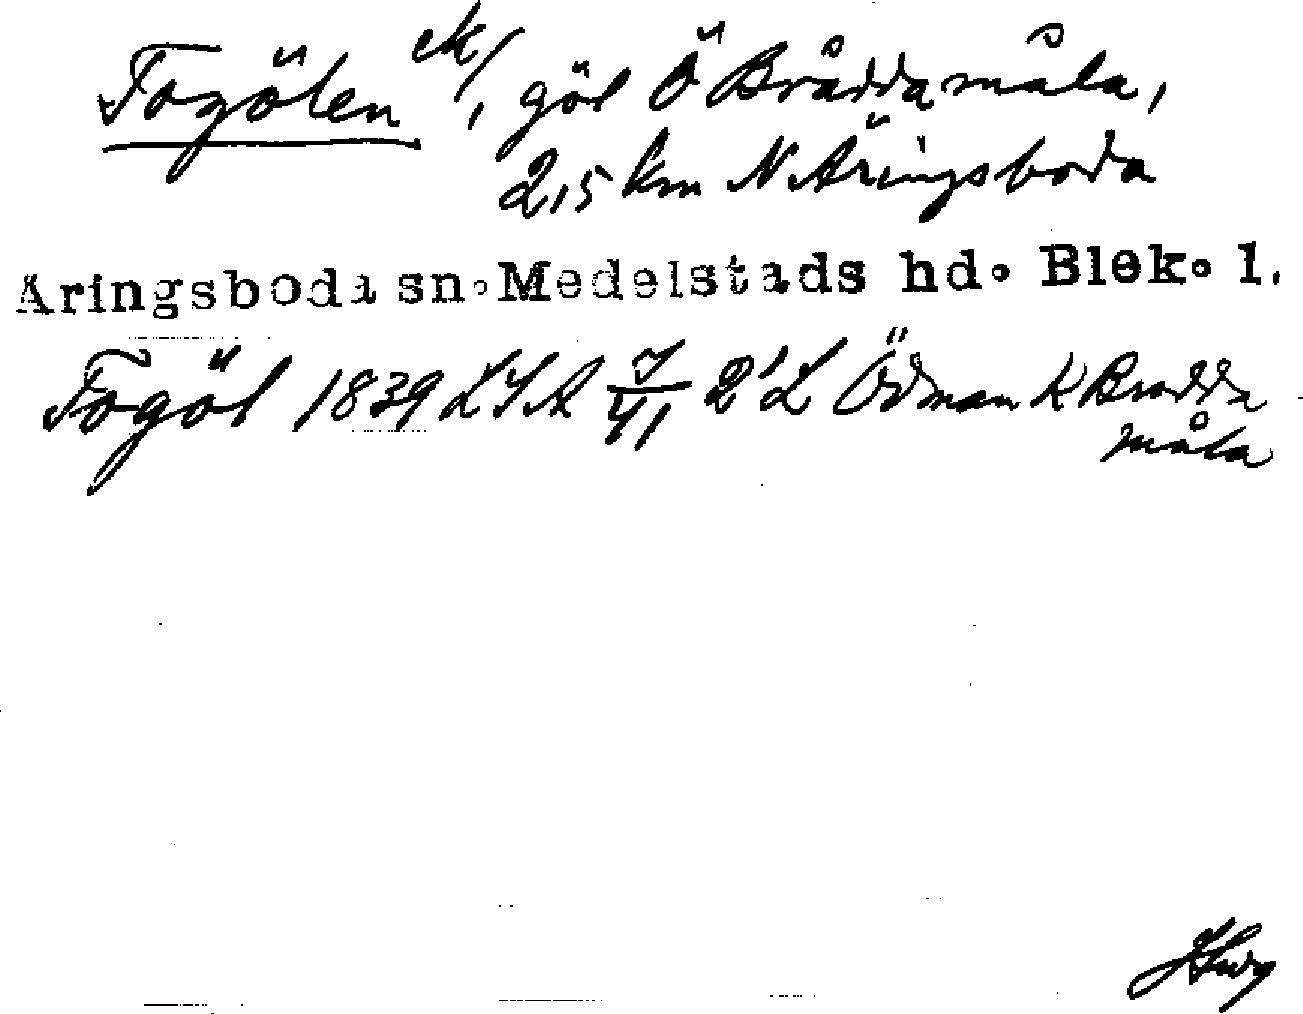 Togölen ek/, göl Ö Bråddamåla,
2,5 km N Äringsboda
Äringsboda sn. Medelstads hd. Blek. l.
Togöl 1839 LSA J/41 2'L Ödman K Bradda
måla